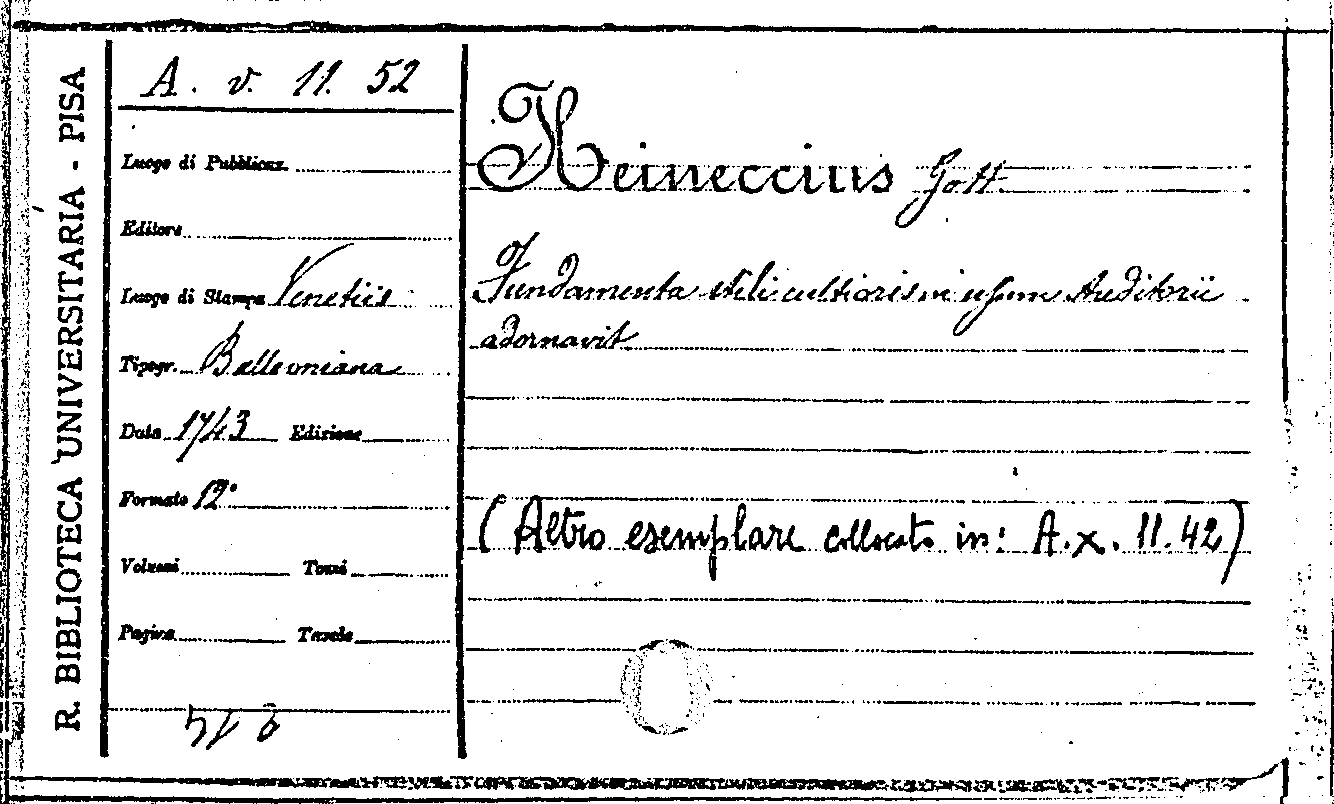 R. BIBLIOTECA UNIVERSITARIA - PISA
A. v. 11. 52
Luogo di Pubblicaz.
Editore
Luogo di Stampa Venetiis
Tipogr. Balleoniana
Data 1743 Edizione
Formato 12°
Volumi Tomi
Pagine Tavole
Heineccius Gott.
Fundamenta stili cultioris in usum Auditorii
adornavit
(Altro esemplare collocato in: A.x. 11.42)